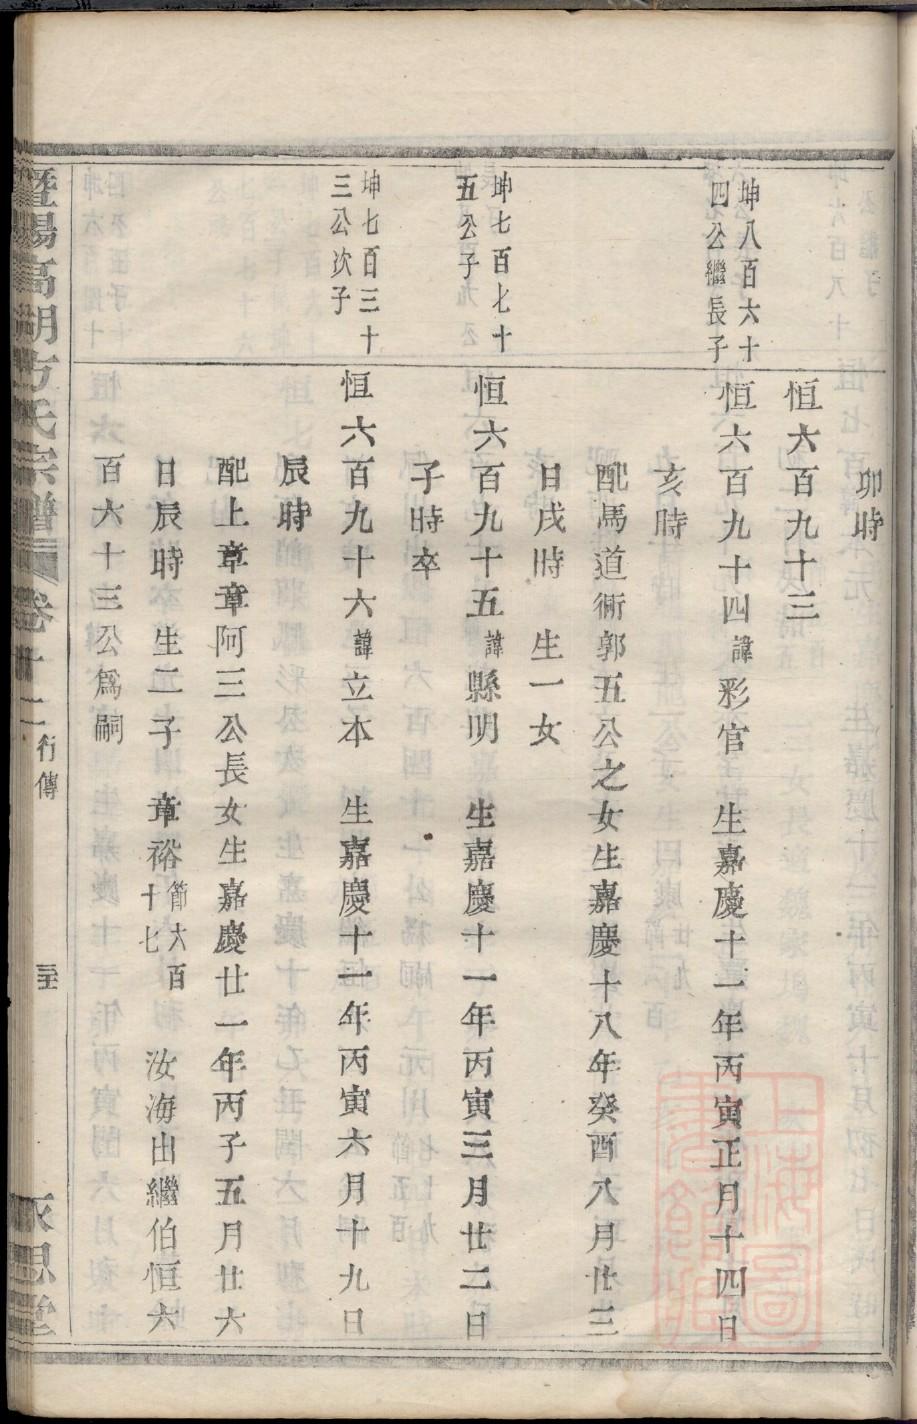 卯時
恒六百九十三
坤八百六十
四公繼長子
恒六百九十四諱彩官 生嘉慶十一年丙寅正月十四日
亥時
配馬道衕郭五公之女生嘉慶十八年癸酉八月廿三
日戌時 生一女
坤七百七十
五公子
恒六百九十五諱縣明 生嘉慶十一年丙寅三月廿二日
子時卒
坤七百三十
三公次子
恒六百九十六諱立本 生嘉慶十一年丙寅六月十九日
辰時
配上章章阿三公長女生嘉慶廿一年丙子五月廿六
日辰時 生二子 章裕節六百十七 汝海出繼伯恒六
百六十三公爲嗣
暨陽高湖方氏宗譜 卷十二 行傳 永思堂